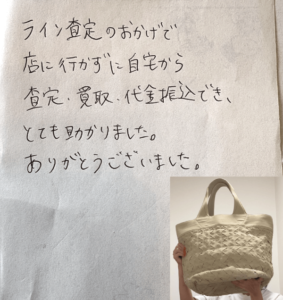 ライン査定のおかげで
店に行かずに自宅から
査定・買取・代金振込でき、
とても助かりました。
ありがとうございました。